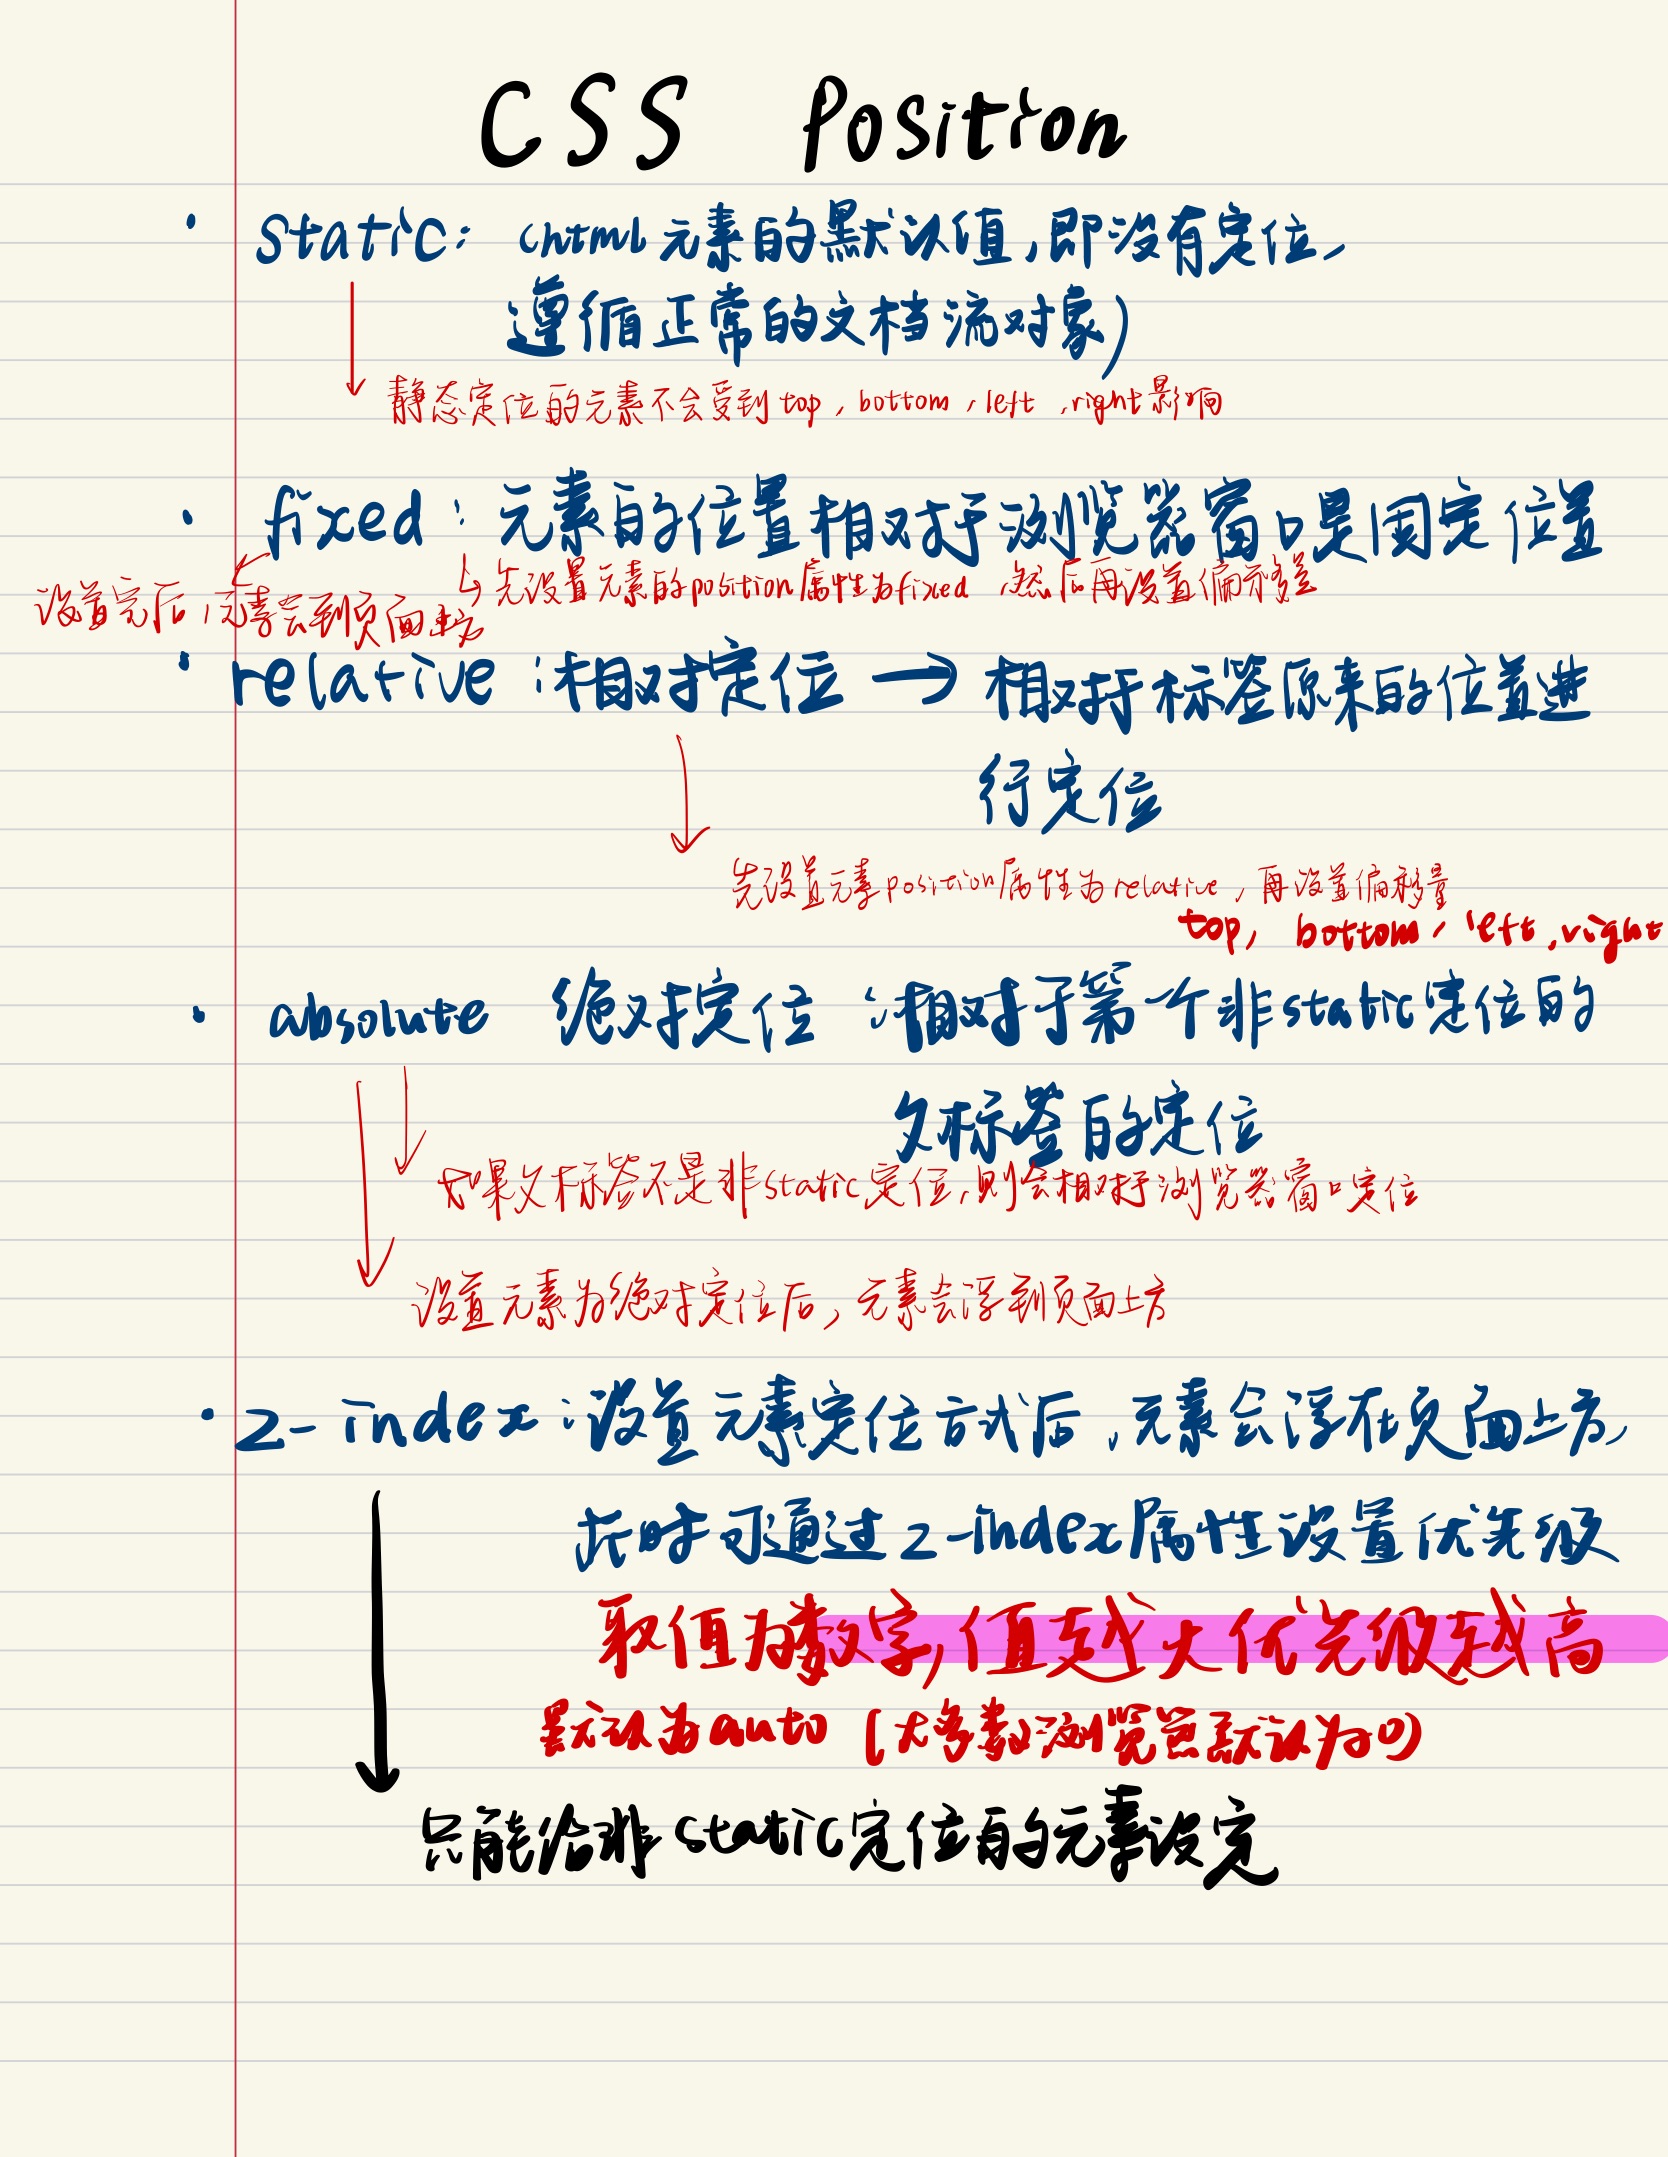 CSS Position
· static: (html元素的默认值,即没有定位,
遵循正常的文档流对象)
静态定位的元素不会受到top, bottom, left, right影响
· fixed: 元素的位置相对于浏览器窗口是固定位置
先设置元素的position属性为fixed, 然后再设置偏移量
设置完后,元素会到页面上方
· relative:相对定位 → 相对于标签原来的位置进
行定位
先设置元素position属性为relative, 再设置偏移量
top, bottom, left, right
· absolute 绝对定位:相对于第一个非static定位的
父标签的定位
如果父标签不是非static定位,则会相对于浏览器窗口定位
设置元素为绝对定位后, 元素会浮到页面上方
· z-index:设置元素定位方式后,元素会浮在页面上方,
此时可通过z-index属性设置优先级
取值为数字,值越大优先级越高
默认为auto (大多数浏览器默认为0)
只能给非static定位的元素设定